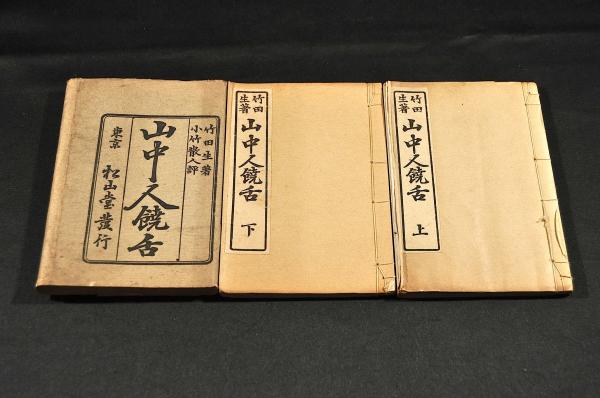 竹田生著
小竹散人評
山中人饒舌
東京 松山堂發行
竹田生著
山中人饒舌
下
竹田生著
山中人饒舌
上